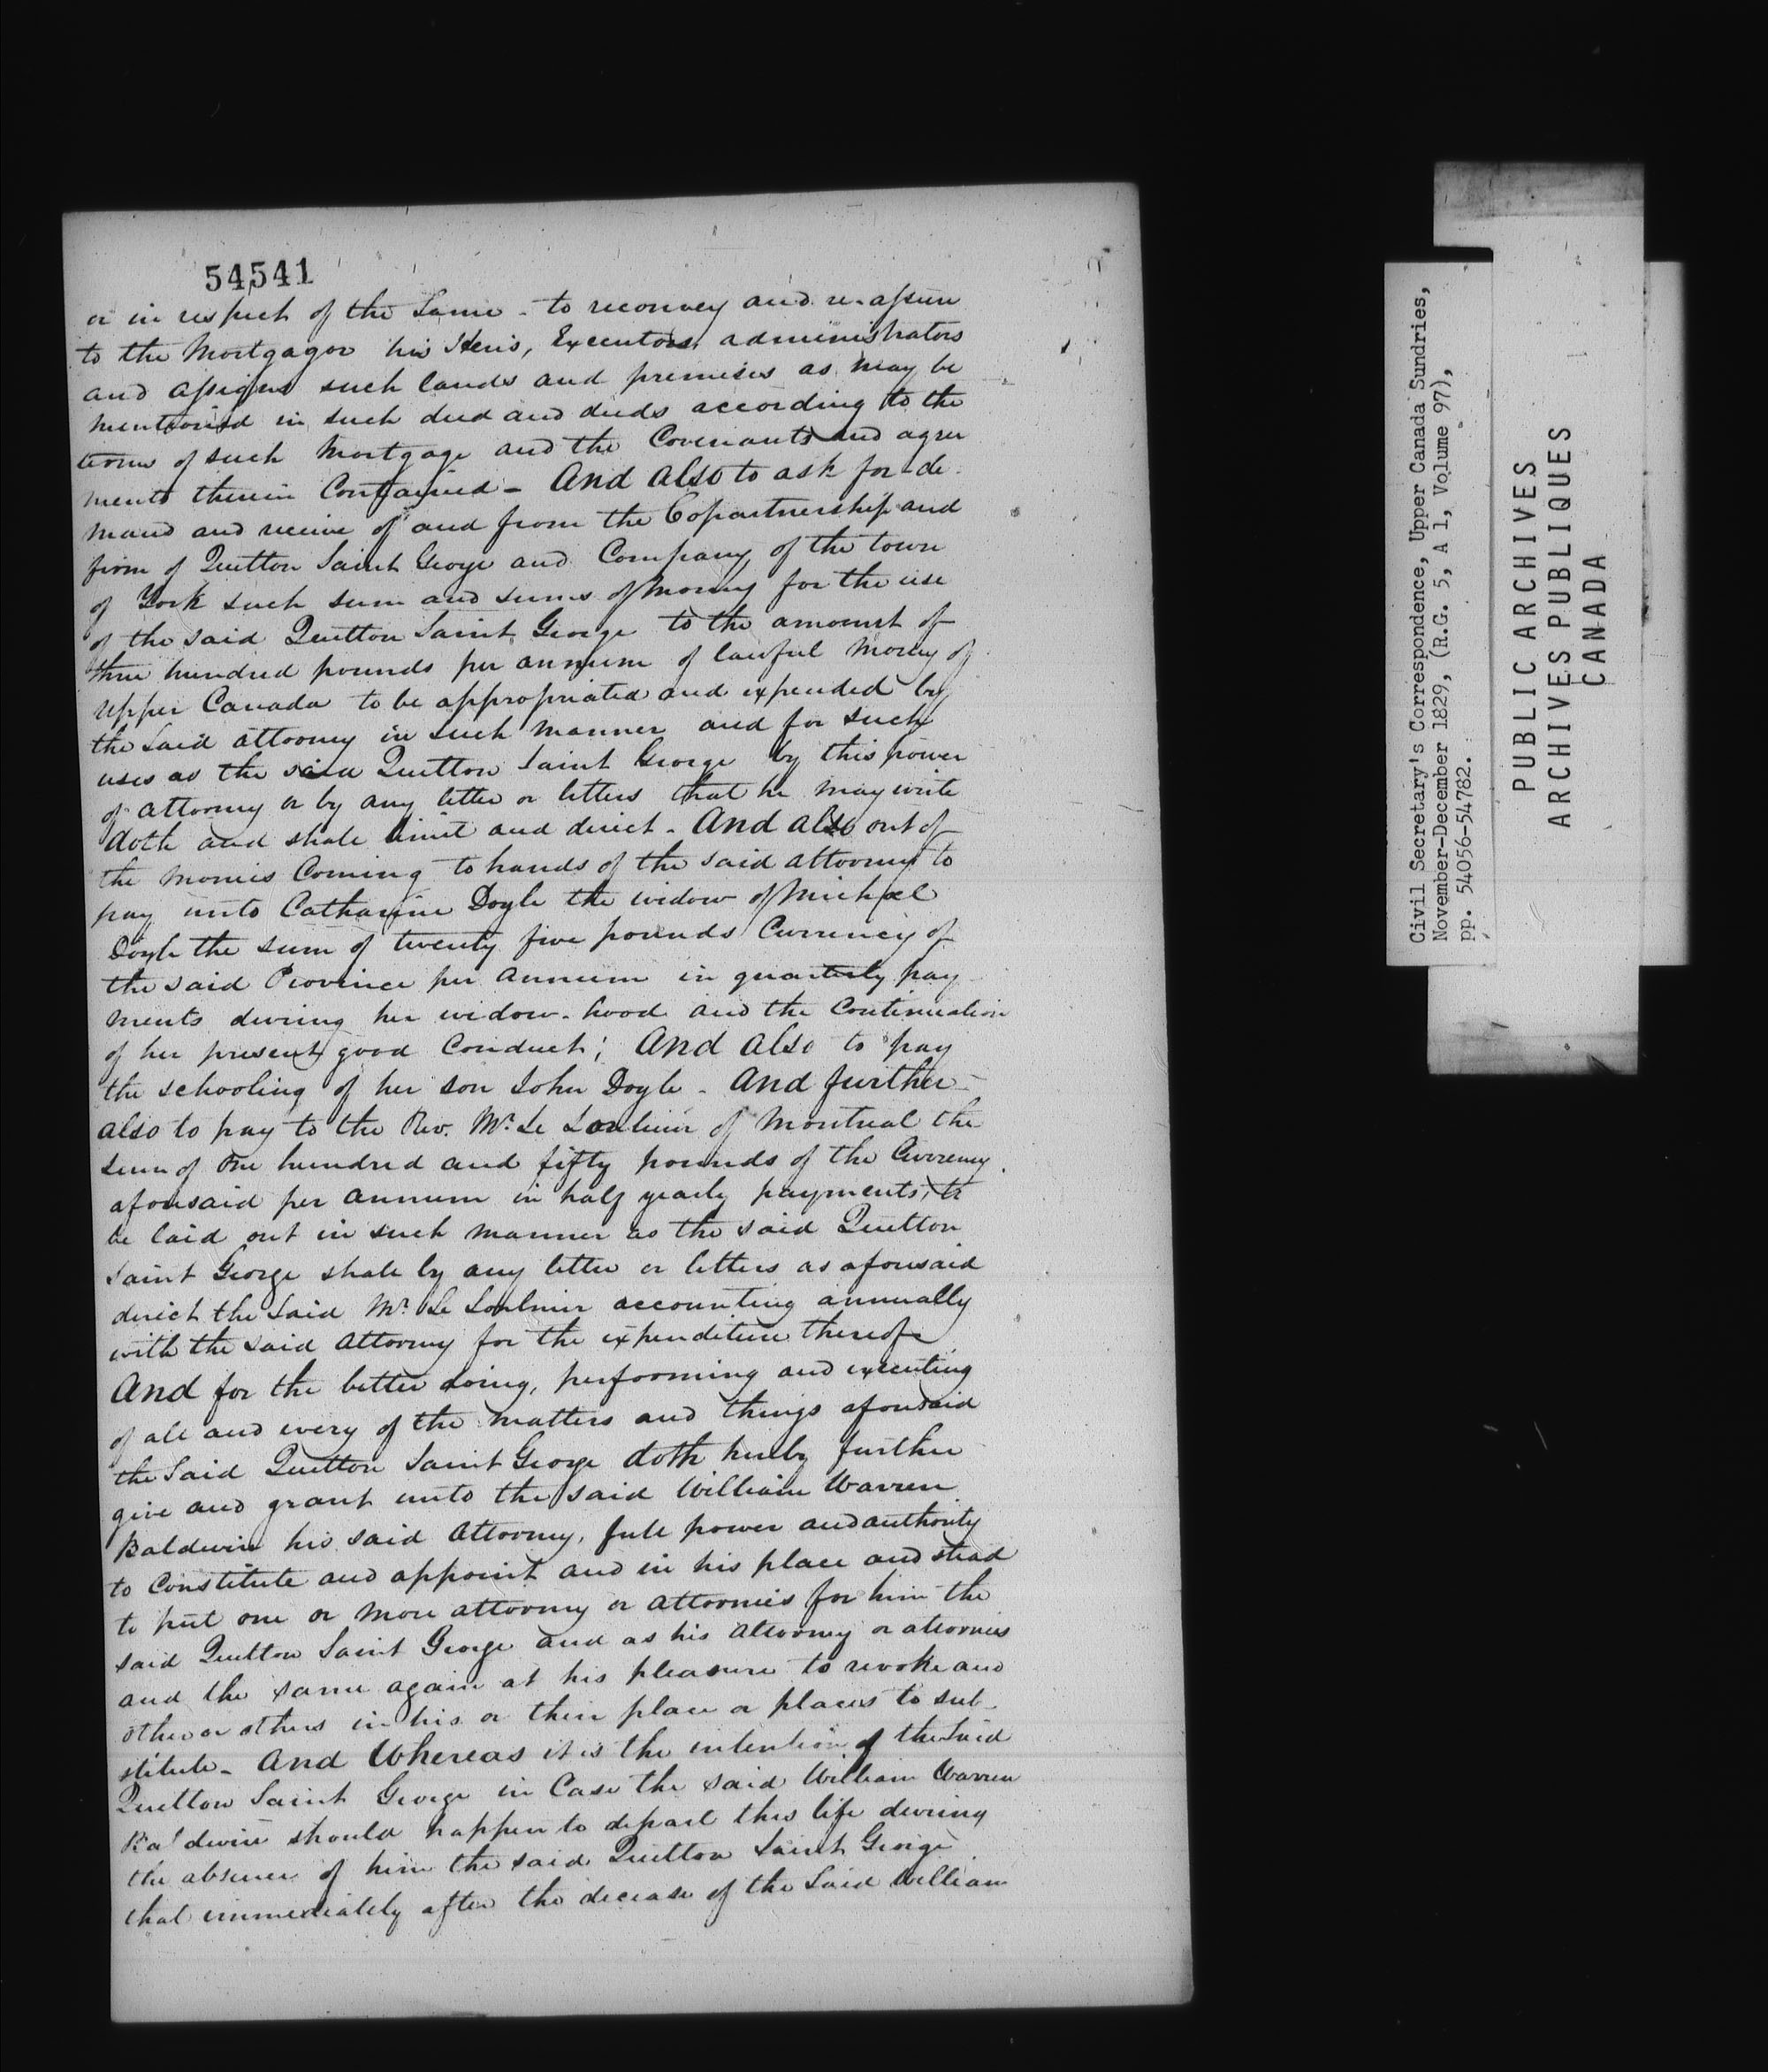 54541
or in respect of the Same - to reconvey and re-assure
to the Mortgagor his Heirs, Executors, administrators
and assigns such lands and premises as may be
mentioned in such deed and deeds according to the
terms of such Mortgage and the Covenants and agree
ments therein Contained - And Also to ask for de-
mand and receive of and from the Copartnership and
firm of Quetton Saint George and Company of the town
of York such sum and sums of Money for the use
of the said Quetton Saint George to the amount of
three hundred pounds per annum of lawful Money of
Upper Canada to be appropriated and expended by
the Said attorney in such Manner and for such
uses as the said Quetton Saint George by this power
of attorney or by any letter or letters that he may write
doth and shall limit and direct - And also out of
the Monies Coming to hands of the said attorney to
pay unto Catharine Doyle the widow of Michael
Doyle the sum of twenty five pounds Currency of
the said Province per Annum in quarterly pay
ments during her widow-hood and the Continuation
of her present good Conduct; And Also to pay
the schooling of her son John Doyle - And further
also to pay to the Rev. Mr. Le of Montreal the
sum of One hundred and fifty pounds of the Currency
aforesaid per Annum in half yearly payments, to
be laid out in such Manner as the said Quetton
Saint George shall by any letter or letters as aforesaid
direct the Said Mr. Le accounting annually
with the said Attorney for the expenditure thereof
And for the better doing, performing and executing
of all and every of the Matters and things aforesaid
the Said Quetton Saint George doth hereby further
give and grant unto the said William Warren
Baldwin his said Attorney, full power and authority
to Constitute and appoint and in his place and stead
to put one or More attorney or attornies for him the
said Quetton Saint George and as his Attorney or attornies
and the same again at his pleasure to revoke and
other or others in his or their place or places to sub-
stitute - And Whereas it is the intention of the Said
Quetton Saint George in Case the said William Warren
Baldwin should happen to depart this life during
the absence of him the said Quetton Saint George
that immediately after the decease of the Said William
Civil Secretary's Correspondence, Upper Canada Sundries,
November-December 1829, (R.G. 5, A 1, Volume 97),
pp. 54056-54782.
PUBLIC ARCHIVES
ARCHIVES PUBLIQUES
CANADA